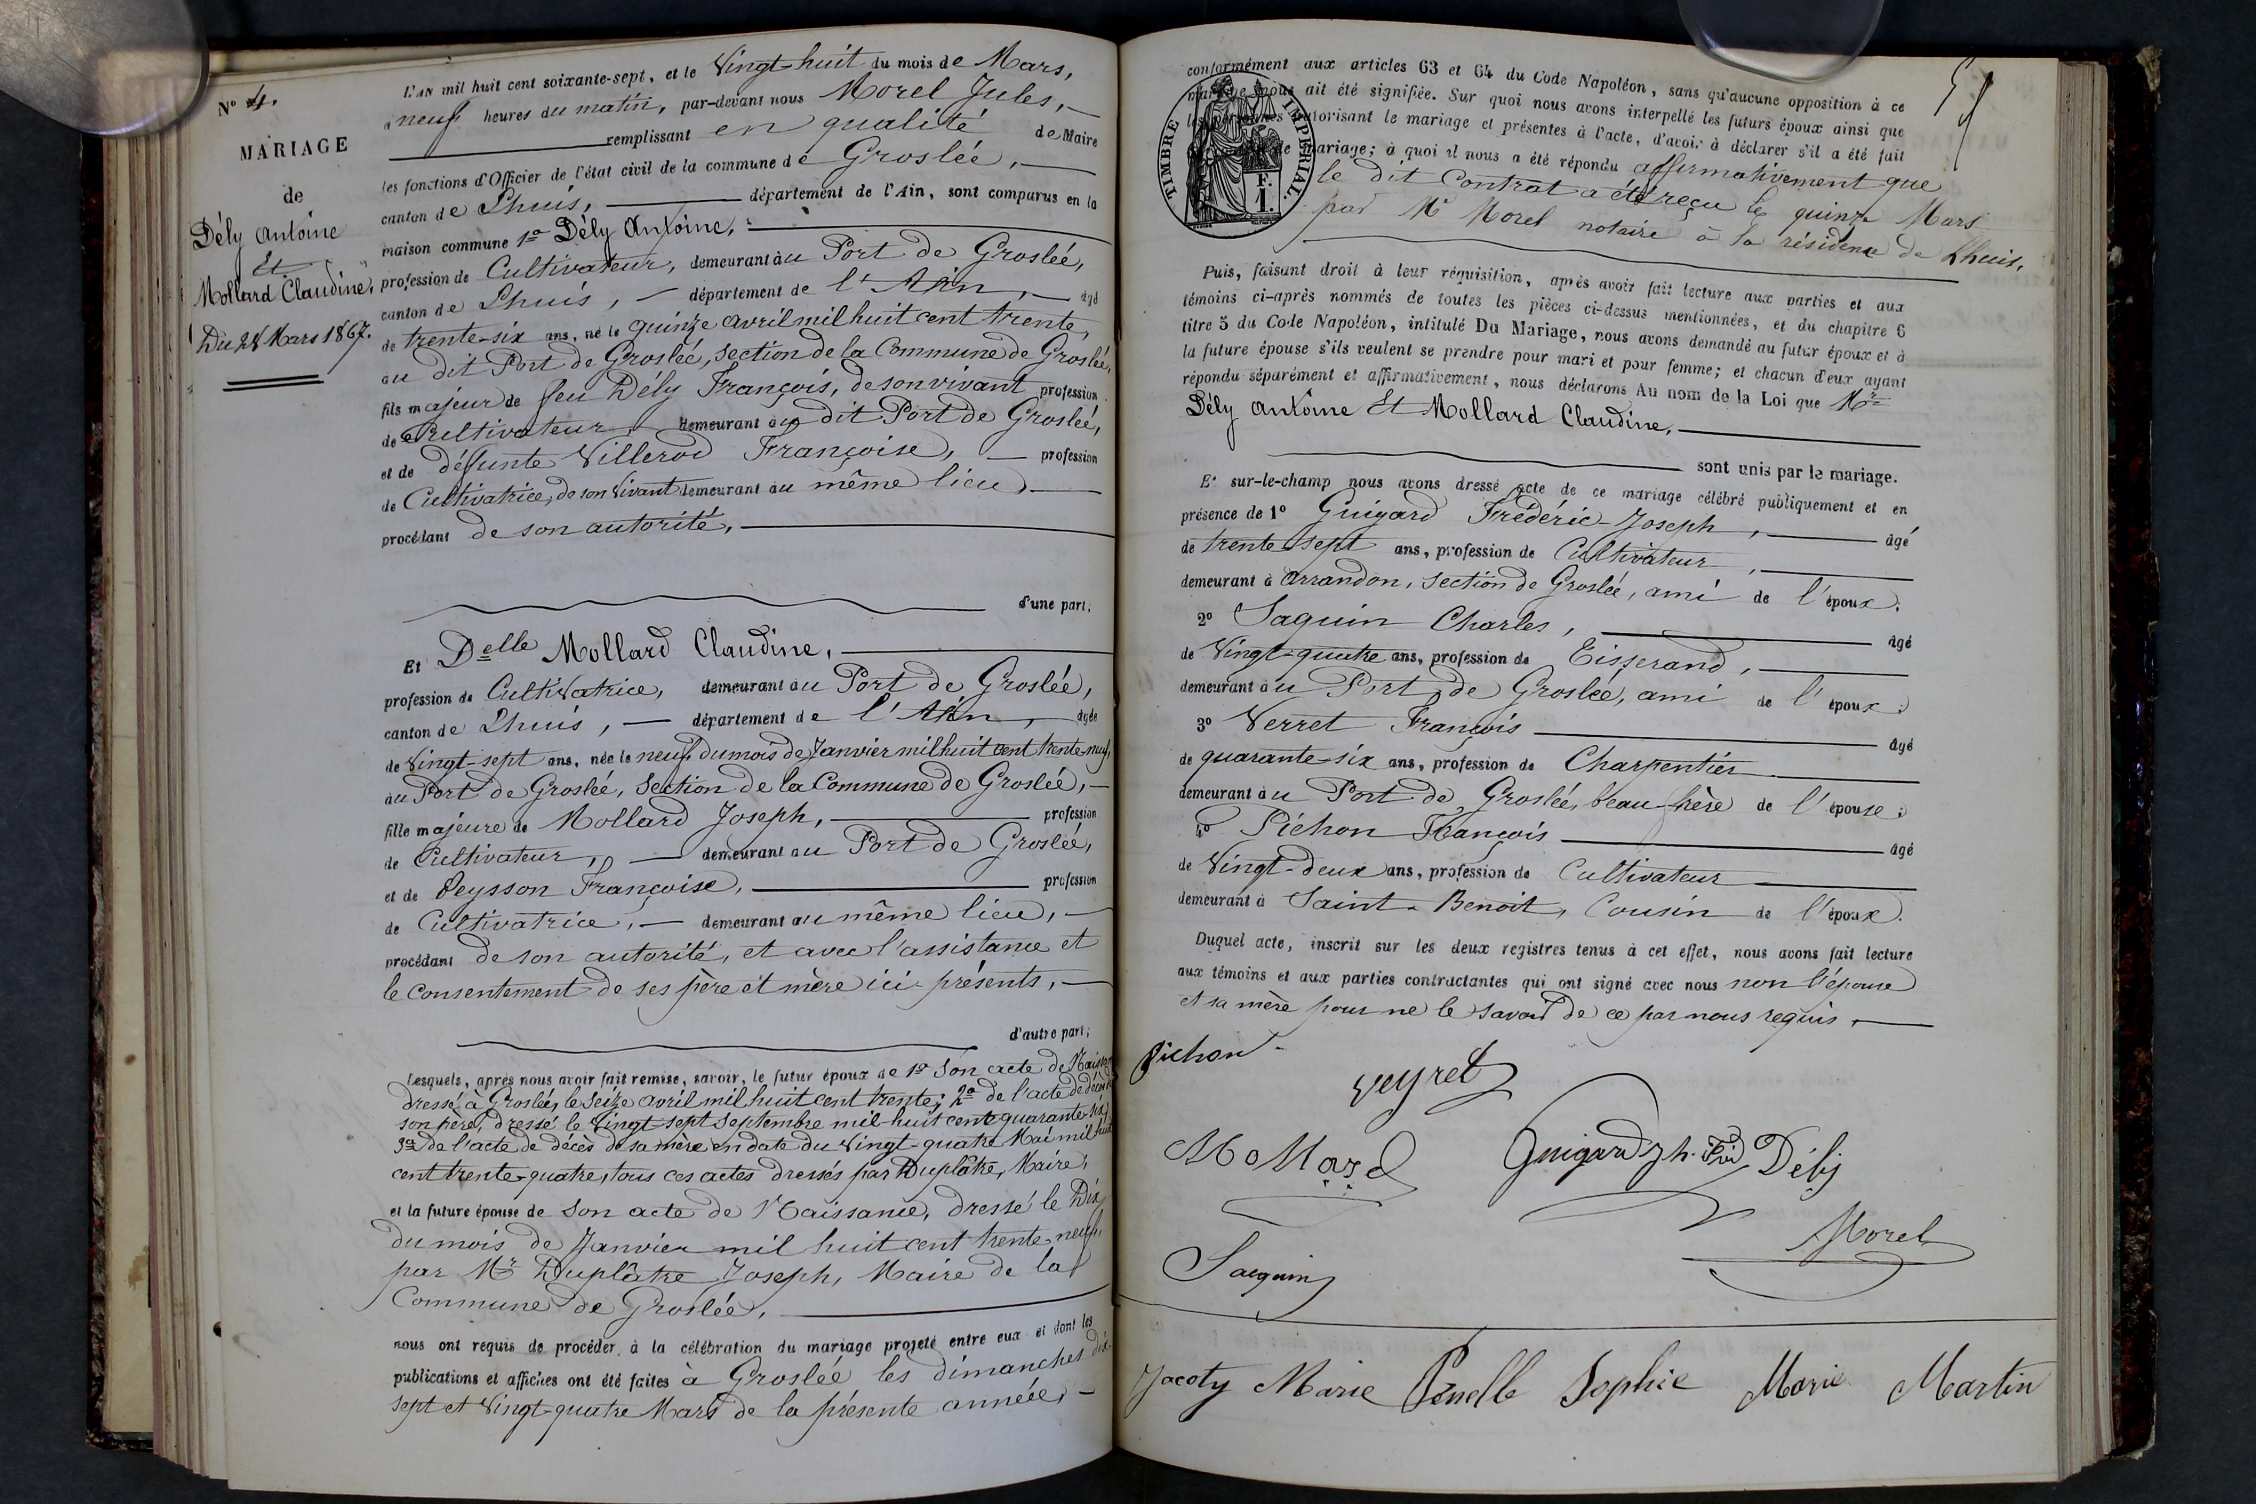 N° 4.
MARIAGE
de
Dély Antoine
Et
Mollard Claudine,
Du 28 Mars 1867.
L'AN mil huit cent soixante-sept, et le Vingt-huit du mois de Mars,
à neuf heures du matin, par-devant nous Morel Jules,
remplissant en qualité de Maire
les fonctions d'Officier de l'état civil de la commune de Groslée,
canton de Lhuis, département de l'Ain, sont comparus en la
maison commune 1° Dély Antoine,
profession de Cultivateur, demeurant au Port de Groslée,
canton de Lhuis, département de l'Ain, âgé
de trente-six ans, né le quinze avril mil huit cent trente,
au dit Port de Groslée, section de la Commune de Groslée,
fils majeur de feu Dély François, de son vivant profession
de Cultivateur, demeurant au dit Port de Groslée,
et de défunte Villerod Françoise, profession
de Cultivatrice, de son Vivant demeurant au même lieu,
procédant de son autorité,
d'une part,
Et Delle Mollard Claudine,
profession de Cultivatrice, demeurant au Port de Groslée,
canton de Lhuis, département de l'Ain, âgée
de Vingt-sept ans, née le neuf du mois de Janvier mil huit cent trente-neuf,
au Port de Groslée, Section de la Commune de Groslée,
fille majeure de Mollard Joseph, profession
de Cultivateur, demeurant au Port de Groslée,
et de Peysson Françoise, profession
de Cultivatrice, demeurant au même lieu,
procédant de son autorité, et avec l'assistance et
le consentement de ses père et mère ici présents,
d'autre part;
Lesquels, après nous avoir fait remise, savoir, le futur époux de 1° Son acte de Naissance
dressé à Groslée, le Seize avril mil huit cent trente; 2° de l'acte de décès de
son père, dressé le Vingt-sept Septembre mil huit cent quarante-six;
3° de l'acte de décès de sa mère en date du Vingt-quatre Mai mil huit
cent trente-quatre, tous ces actes dressés par Duplâtre, Maire;
et la future épouse de Son acte de Naissance, dressé le Dix
du mois de Janvier mil huit cent trente neuf,
par Mr Duplâtre Joseph, Maire de la
Commune de Groslée,
nous ont requis de procéder à la célébration du mariage projeté entre eux et dont les
publications et affiches ont été faites à Groslée les dimanches dix-
sept et Vingt-quatre Mars de la présente année,
conformément aux articles 63 et 64 du Code Napoléon, sans qu'aucune opposition à ce
mariage nous ait été signifiée. Sur quoi nous avons interpellé les futurs époux ainsi que
les personnes autorisant le mariage et présentes à l'acte, d'avoir à déclarer s'il a été fait
de mariage; à quoi il nous a été répondu affirmativement que
le dit Contrat a été reçu le quinze Mars
par Me Morel notaire à la résidence de Lhuis,
TIMBRE IMPÉRIAL.
F.
1.
Puis, faisant droit à leur réquisition, après avoir fait lecture aux parties et aux
témoins ci-après nommés de toutes les pièces ci-dessus mentionnées, et du chapitre 6
titre 5 du Code Napoléon, intitulé Du Mariage, nous avons demandé au futur époux et à
la future épouse s'ils veulent se prendre pour mari et pour femme; et chacun d'eux ayant
répondu séparément et affirmativement, nous déclarons Au nom de la Loi que Mr
Dély Antoine Et Mollard Claudine,
sont unis par le mariage.
Et sur-le-champ nous avons dressé acte de ce mariage célébré publiquement et en
présence de 1° Guigard Frédéric-Joseph, âgé
de trente-sept ans, profession de Cultivateur,
demeurant à Arrandon, section de Groslée, ami de l'époux.
2° Saguin Charles, âgé
de Vingt-quatre ans, profession de Tisserand,
demeurant au Port de Groslée, ami de l'époux;
3° Verret François âgé
de quarante-six ans, profession de Charpentier
demeurant au Port de Groslée, beau-frère de l'épouse;
4° Pichon François âgé
de Vingt-deux ans, profession de Cultivateur
demeurant à Saint-Benoit, Cousin de l'époux.
Duquel acte, inscrit sur les deux registres tenus à cet effet, nous avons fait lecture
aux témoins et aux parties contractantes qui ont signé avec nous non l'épouse
et sa mère pour ne le savoir de ce par nous requis.
Pichon
Veyret
Mollard
Guigard Jh. Fréd
Déliy
Morel
Saeguin
Jacoty Marie
Sophie
Marie Martin